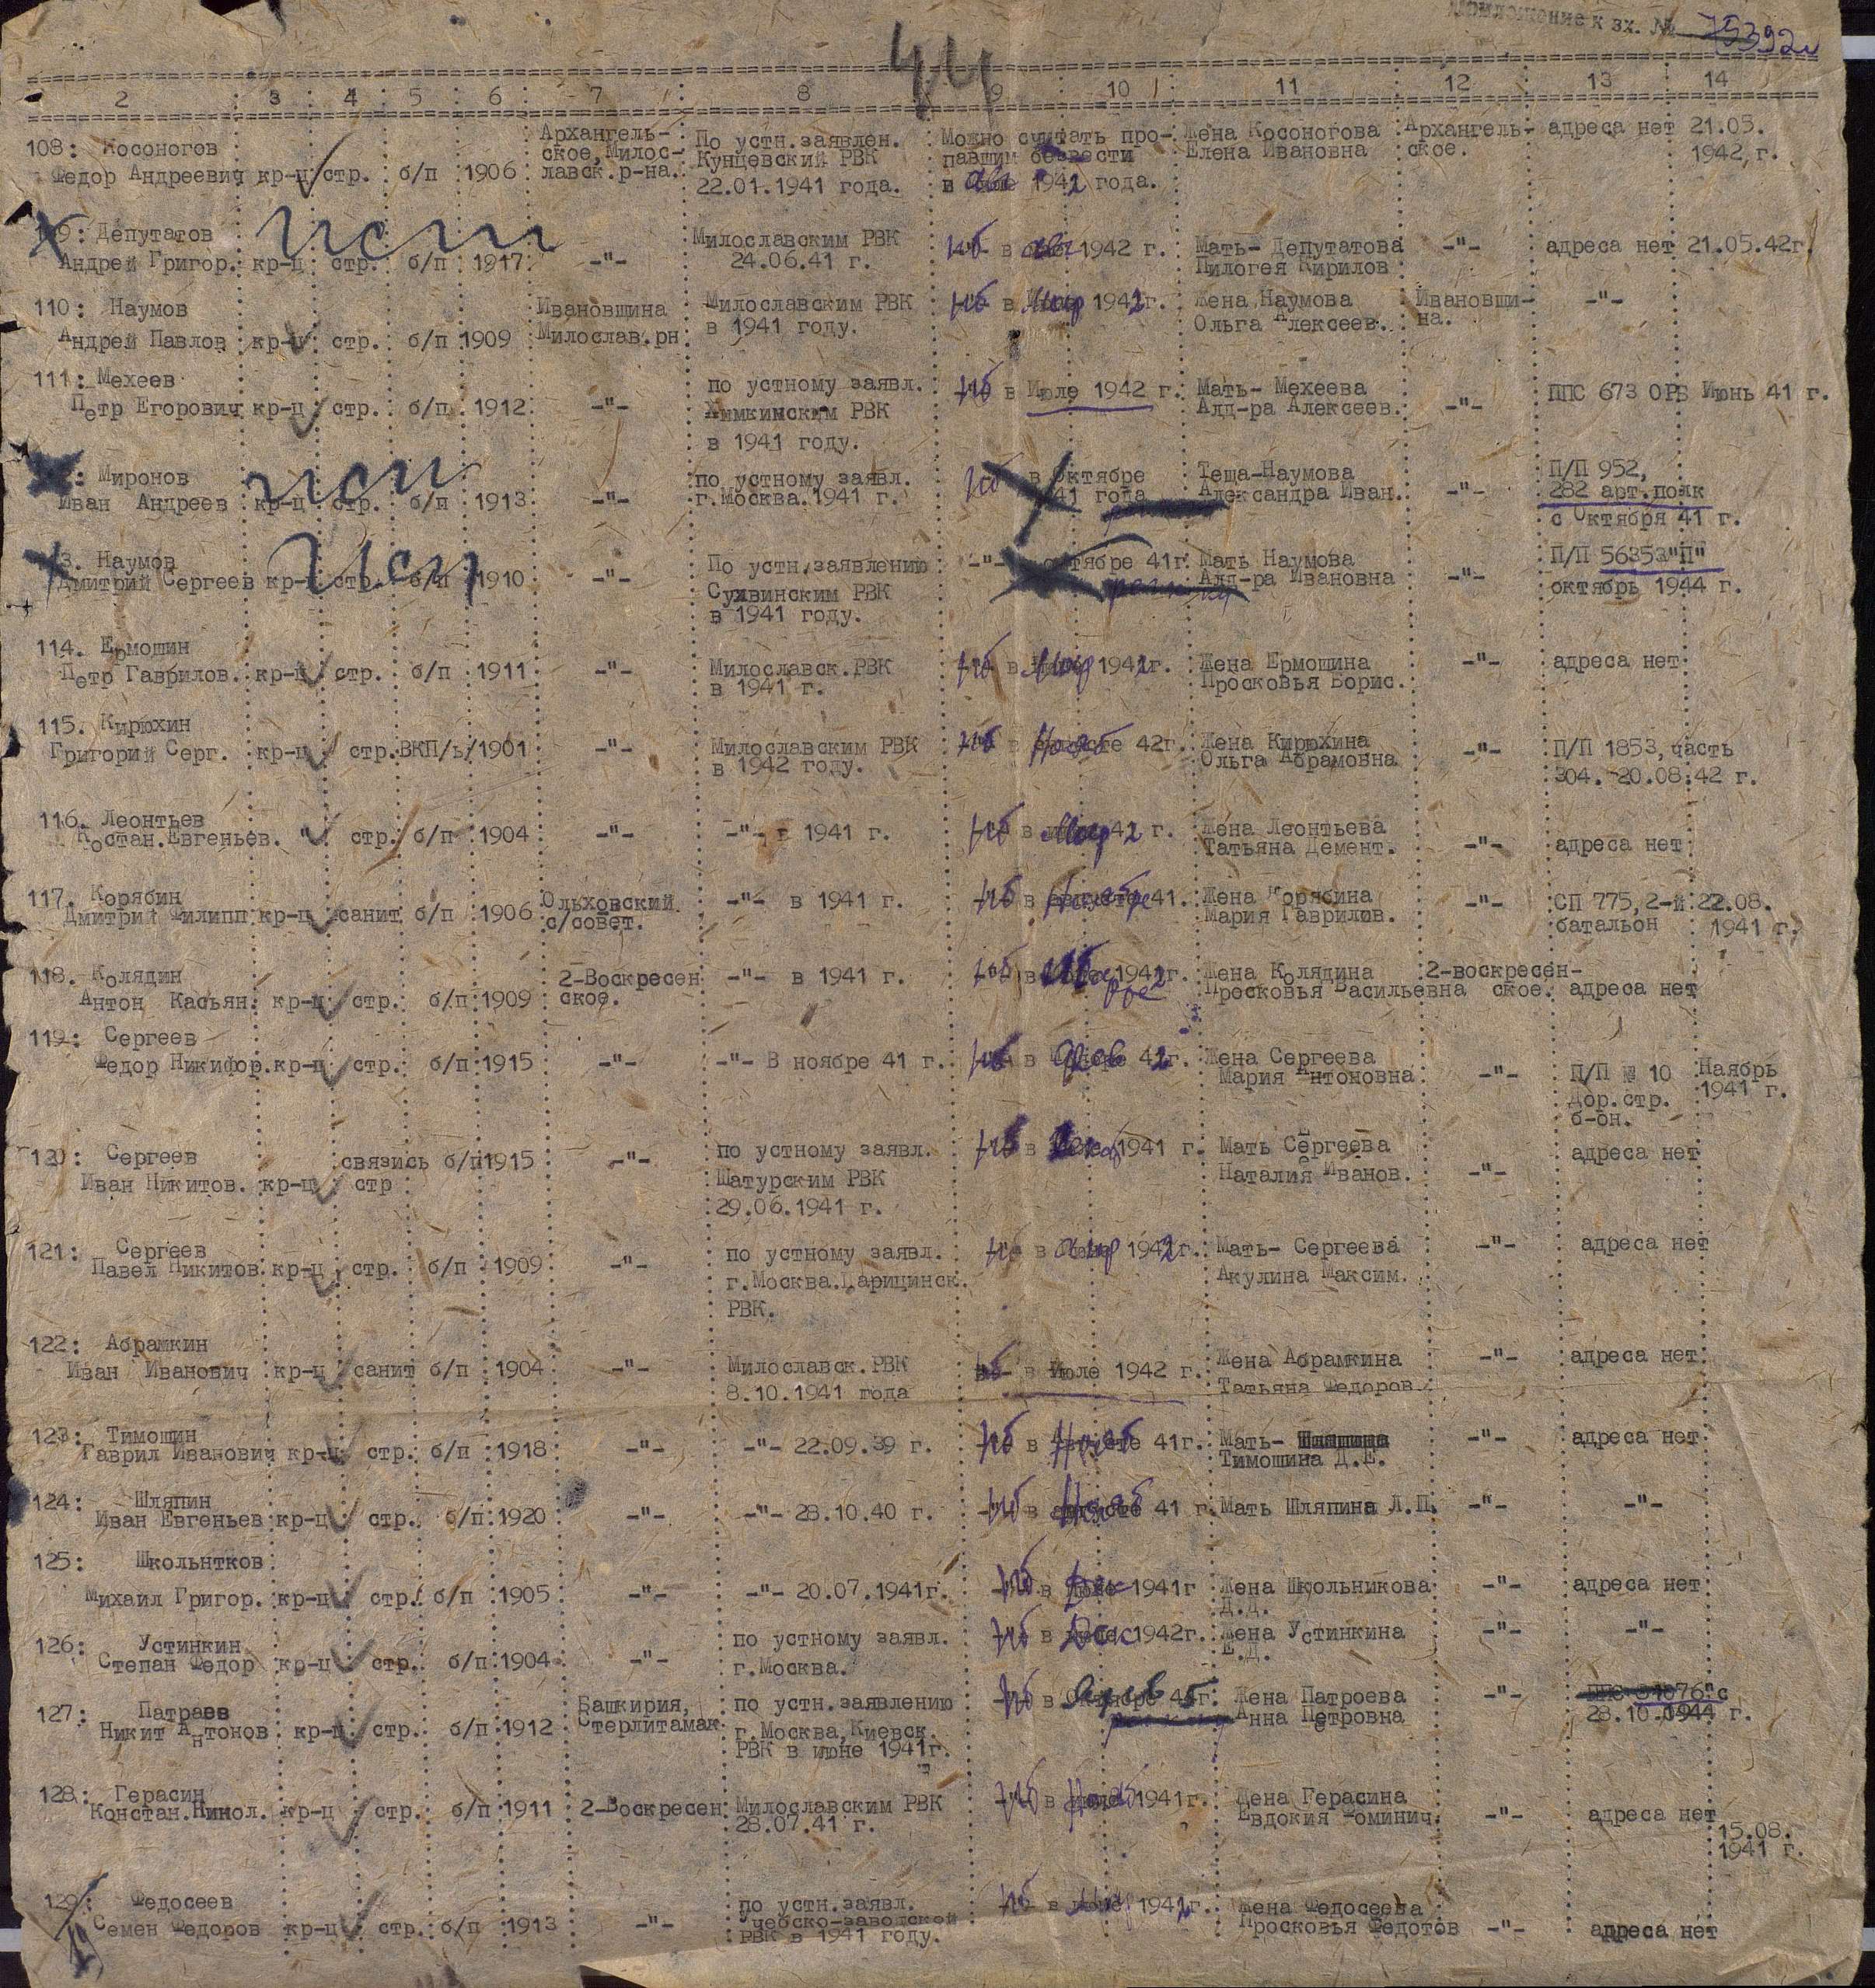 к вх. № 75392с
44
2 3 4 5 6 7 8 9 10 11 12 13 14
108: Косоногов Федор Андреевич кр-ц стр. б/п 1906 Архангель-ское, Милос-лавск.р-на. По устн.заявлен. Кунцевский РВК 22.01.1941 года. Можно считать про-павшим безвести в 1942 года. Жена Косоногова Елена Ивановна Архангель-ское. адреса нет 21.05. 1942, г.
9: Депутатов Андрей Григор. кр-ц стр. б/п 1917 -"- Милославским РВК 24.06.41 г. в 1942 г. Мать- Депутатова Пилогея Кирилов -"- адреса нет 21.05.42г.
110: Наумов Андрей Павлов кр-ц стр. б/п 1909 Ивановщина Милослав.рн Милославским РВК в 1941 году. в 1942г. Жена Наумова Ольга Алексеев. Ивановщи-на. -"-
111: Мехеев Петр Егорович кр-ц стр. б/п 1912 -"- по устному заявл. Химкинским РВК в 1941 году. в Июле 1942 г. Мать- Мехеева Алд-ра Алексеев. -"- ППС 673 ОРБ Июнь 41 г.
: Миронов Иван Андреев кр-ц стр. б/п 1913 -"- по устному заявл. г.Москва.1941 г. в Октябре 41 года Теща-Наумова Александра Иван. -"- П/П 952, 282 арт.полк с Октября 41 г.
3. Наумов Дмитрий Сергеев кр-ц стр. б/п 1910 -"- По устн.заявлению Сухвинским РВК в 1941 году. -"- октябре 41г. Мать Наумова Алд-ра Ивановна -"- П/П 56353"П" октябрь 1944 г.
114. Ермошин Петр Гаврилов. кр-ц стр. б/п 1911 -"- Милославск.РВК в 1941 г. в 1942г. Жена Ермошина Просковья Борис. -"- адреса нет
115. Кирюхин Григорий Серг. кр-ц стр. ВКП/ь/ 1901 -"- Милославским РВК в 1942 году. в 42г. Жена Кирюхина Ольга Абрамовна -"- П/П 1853, часть 304. 20.08.42 г.
116. Леонтьев Костан.Евгеньев. " стр. б/п 1904 -"- -"- в 1941 г. в 42 г. Жена Леонтьева Татьяна Демент. -"- адреса нет
117. Корябин Дмитрий Филипп кр-ц санит б/п 1906 Ольховский с/совет. -"- в 1941 г. в 41. Жена Корябина Мария Гаврилов. -"- СП 775, 2-й батальон 22.08. 1941 г.
118. Колядин Антон Касьян. кр-ц стр. б/п 1909 2-Воскресен ское. -"- в 1941 г. в 1942г. Жена Колядина Просковья Васильевна 2-воскресен-ское. адреса нет
119: Сергеев Федор Никифор. кр-ц стр. б/п 1915 -"- -"- В ноябре 41 г. в 42г. Жена Сергеева Мария Антоновна -"- П/П № 10 Дор.стр. б-он. Наябрь 1941 г.
120: Сергеев Иван Никитов. кр-ц связись стр б/п 1915 -"- по устному заявл. Шатурским РВК 29.06.1941 г. в 1941 г. Мать Сергеева Наталия Иванов. -"- адреса нет
121: Сергеев Павел Никитов кр-ц стр. б/п 1909 -"- по устному заявл. г.Москва.Царицинск. РВК. в 1942г. Мать- Сергеева Акулина Максим. -"- адреса нет
122: Абрамкин Иван Иванович кр-ц санит б/п 1904 -"- Милославск.РВК 8.10.1941 года в Июле 1942 г. Жена Абрамкина Татьяна Федоров. -"- адреса нет
123: Тимошин Гаврил Иванович кр-ц стр. б/п 1918 -"- -"- 22.09.39 г. в 41г. Мать- Тимошина Д.Е. -"- адреса нет
124: Шляпин Иван Евгеньев кр-ц стр. б/п 1920 -"- -"- 28.10.40 г. в 41 г. Мать Шляпина Л.П. -"- -"-
125: Школьнтков Михаил Григор. кр-ц стр. б/п 1905 -"- -"- 20.07.1941г. в 1941г Жена Школьникова Д.Д. -"- адреса нет
126: Устинкин Степан Федор кр-ц стр. б/п 1904 -"- по устному заявл. г.Москва. в 1942г. Жена Устинкина Е.Д. -"- -"-
127: Патраев Никит Антонов кр-ц стр. б/п 1912 Башкирия, Стерлитамак по устн.заявлению г.Москва,Киевск. РВК в июне 1941г. в 45г. Жена Патроева Анна Петровна -"- с 28.10.1944 г.
128: Герасин Констан.Никол. кр-ц стр. б/п 1911 2-Воскресен Милославским РВК 28.07.41 г. в 1941г. Жена Герасина Евдокия Фоминич. -"- адреса нет 15.08. 1941 г.
129: Федосеев Семен Федоров кр-ц стр. б/п 1913 -"- по устн.заявл. Учебско-заводской РВК в 1941 году. в 1942г. Жена Федосеева Просковья Федотов -"- адреса нет